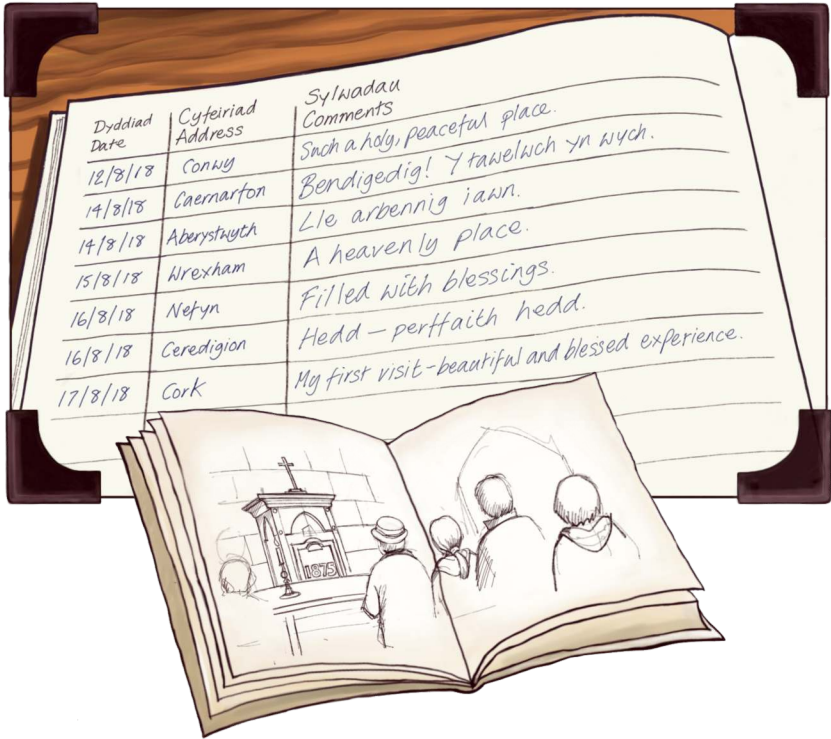 Dyddiad Cyfeiriad Sylwadau
Date Address Comments
12/8/18 Conwy Such a holy, peaceful place.
14/8/18 Caernarfon Bendigedig! Y tawelwch yn wych.
14/8/18 Aberystwyth Lle arbennig iawn.
15/8/18 Wrexham A heavenly place.
16/8/18 Nefyn Filled with blessings.
16/8/18 Ceredigion Hedd – perffaith hedd.
17/8/18 Cork My first visit - beautiful and blessed experience.
1875